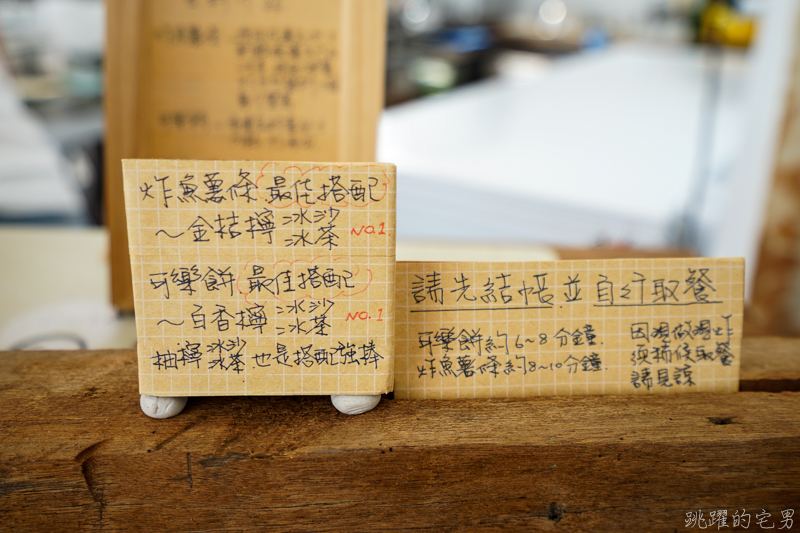 炸魚薯條 最佳搭配
～金桔檸 冰沙
冰茶 NO.1
可樂餅 最佳搭配
～百香檸 冰沙
冰茶 NO.1
柚檸 冰沙
冰茶 也是搭配強棒
請先結帳並自行取餐
可樂餅約6~8分鐘.
炸魚薯條約8~10分鐘.
因現做現炸
須稍候取餐
請見諒
跳躍的宅男